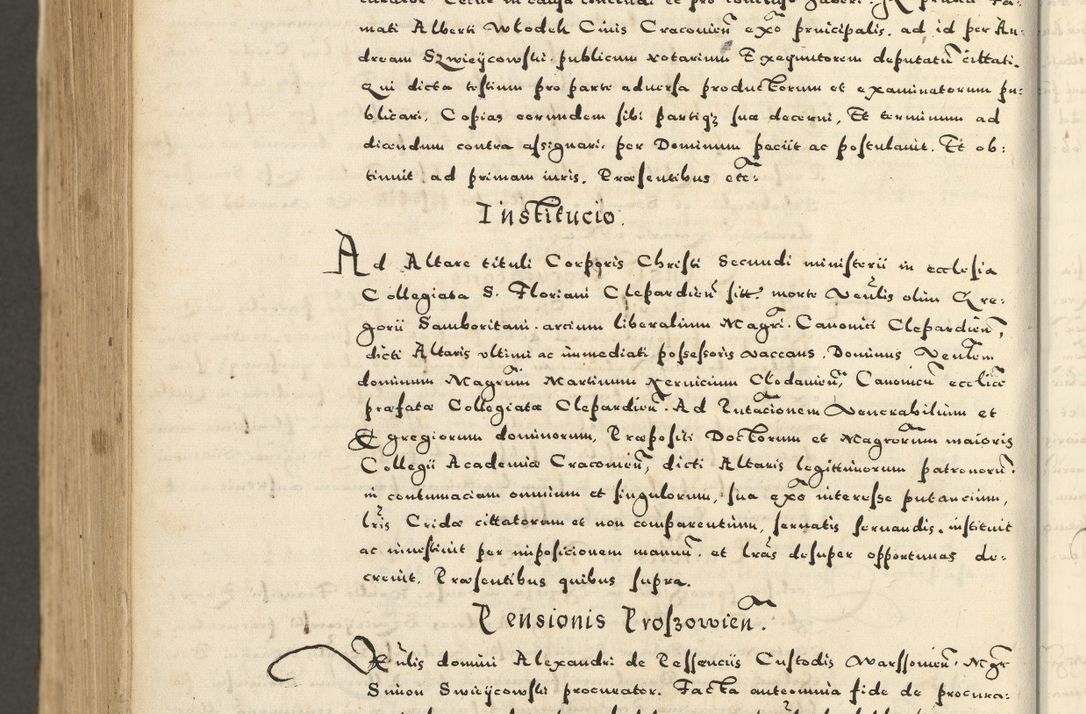 mati Alberti Włodek Ciuis Cracovien̄ exº principalis. ad id per An:
dream Szwieÿcowski publicum notarium Exequutorem deputatū cittati.
Qui dicta testium pro parte aduersa productorum et examinatorum pu:
blicari, Copias eorundem sibi partiqz suæ decerni, Et terminum ad
dicendum contra assignari. per Dominum peciit ac postulauit. Et ob:
tinuit ad primam iuris. Præsentibus etc:
Institucio.
Ad Altare tituli Corporis Christi Secundi ministerii in ecclesia
Collegiata S. Floriani Clepardien̄ sitt. morte Ven̄lis olim Gre:
gorii Samboritani. arcium liberalium Magr̄i. Canonici Clepardien̄,
dicti Altaris vltimi ac immediati possessoris vaccans. Dominus Venlem
dominum Magrūm Martinum Xervicium Clodavien̄, Canonicū ecclīæ
præfatæ Collegiatæ Clepardien̄. Ad Pn̄tacionem Venerabilium et
Egregiorum dominorum, Præpositi Doctorum et Magrōrum maioris
Collegii Academiæ Cracouien̄, dicti Altaris legittimorum patronorū.
in contumaciam omnium et singulorum, sua exº interesse putancium,
lrīs Cridæ cittatorum et non comparentium, seruatis seruandis. instituit
ac inuestiuit per imposicionem manuū. et lrās desuper opportunas de:
creuit. Præsentibus quibus supra.
Pensionis Proszowien̄.
Ven̄lis domini Alexandri de Pessenciis Custodis Warssouien̄, Mgr
Simon Swieÿcowski procurator. Facta anteomnia fide de procura: